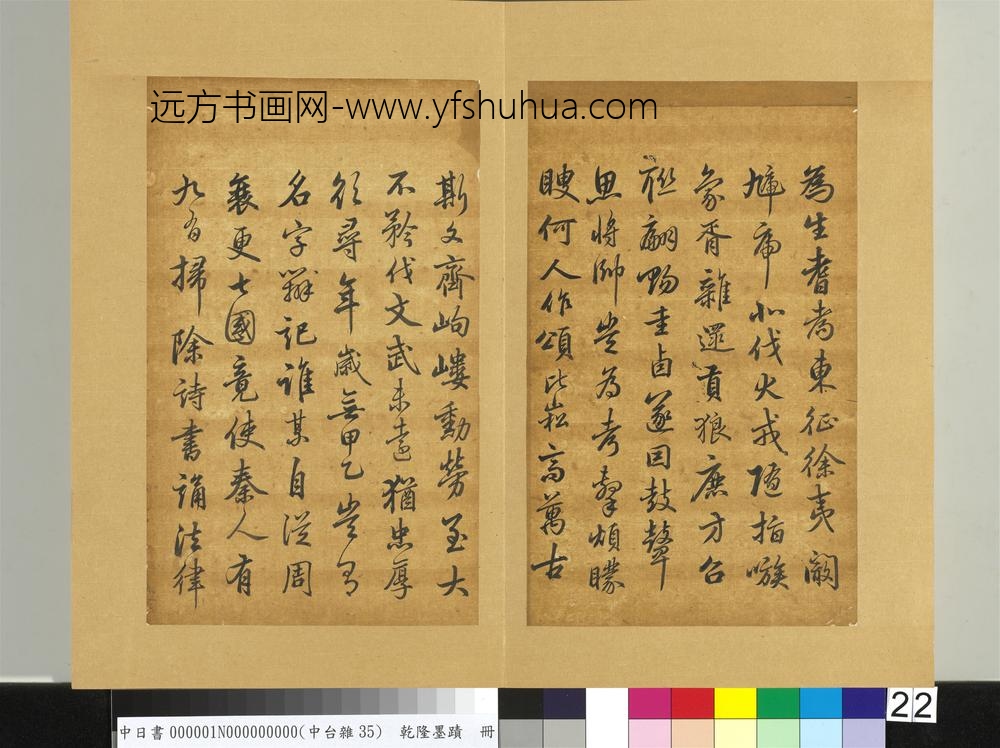 远方书画网-www.yfshuhua.com
為生耆耇東征徐夷闞
虓虎北伐犬戎隨指嗾
象胥雜遝貢狼鹿方召
聯翩賜圭卣遂因鼓鼙
思將帥豈為考擊煩矇
瞍何人作頌比崧高萬古
斯文齊岣嶁勳勞至大
不矜伐文武未遠猶忠厚
欲尋年歲無甲乙豈有
名字辨記誰某自從周
衰更七國竟使秦人有
九有掃除詩書誦法律
22
中日書000001N000000000(中台雜35) 乾隆墨蹟 冊